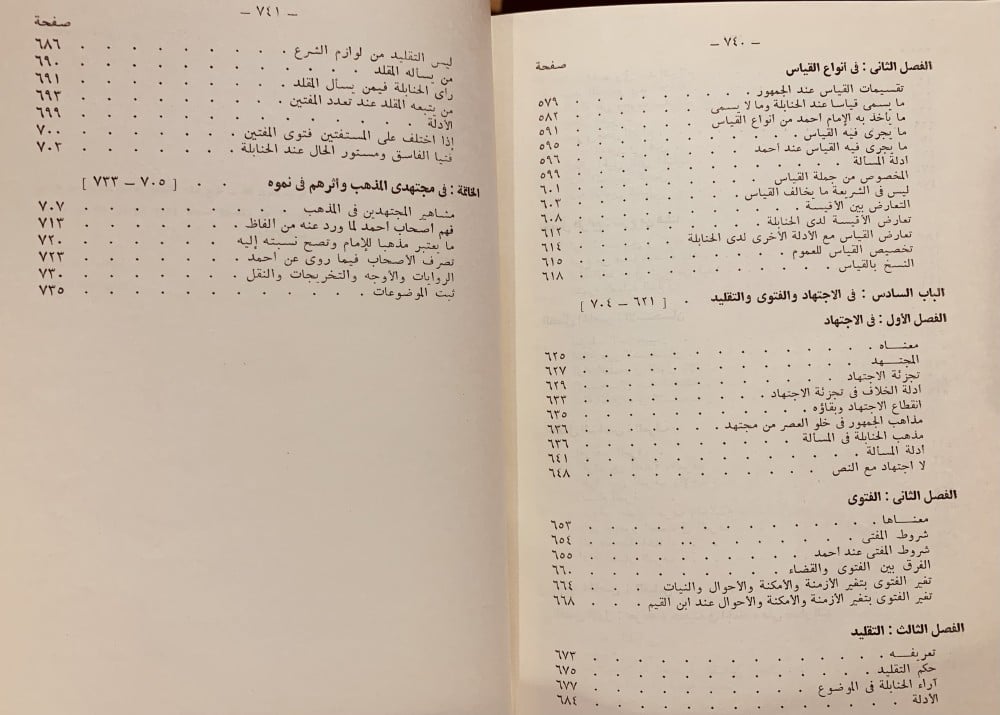 — ٧٤٠ —
صفحة
الفصل الثانى : فى أنواع القياس
تقسيمات القياس عند الجمهور . . . . . . . . ٥٧٩
ما يسمى قياسا عند الحنابلة وما لا يسمى . . . . . ٥٨٢
ما يأخذ به الإمام أحمد من أنواع القياس . . . . . ٥٩١
ما يجرى فيه القياس . . . . . . . . . ٥٩٥
ما يجرى فيه القياس عند أحمد . . . . . . . ٥٩٦
أدلة المسألة . . . . . . . . . . ٥٩٩
المخصوص من جملة القياس . . . . . . . ٦٠١
ليس فى الشريعة ما يخالف القياس . . . . . . ٦٠٣
التعارض بين الأقيسة . . . . . . . . ٦٠٨
تعارض الأقيسة لدى الحنابلة . . . . . . . ٦١٢
تعارض القياس مع الأدلة الأخرى لدى الحنابلة . . . . ٦١٤
تخصيص القياس للعموم . . . . . . . . ٦١٥
النسخ بالقياس . . . . . . . . . . ٦١٨
الباب السادس : فى الاجتهاد والفتوى والتقليد . [ ٦٢١ — ٧٠٤ ]
الفصل الأول : فى الاجتهاد
معنــاه . . . . . . . . . . . ٦٢٥
المجتـهد . . . . . . . . . . . ٦٢٧
تجزئة الاجتهاد . . . . . . . . . . ٦٢٩
أدلة الخلاف فى تجزئة الاجتهاد . . . . . . . ٦٣٣
انقطاع الاجتهاد وبقاؤه . . . . . . . . ٦٣٥
مذاهب الجمهور فى خلو العصر من مجتهد . . . . . ٦٣٦
مذهب الحنابلة فى المسألة . . . . . . . . ٦٣٦
أدلة المسألة . . . . . . . . . . ٦٤١
لا اجتهاد مع النص . . . . . . . . . ٦٤٨
الفصل الثانى : الفتوى
معنــاها . . . . . . . . . . . ٦٥٣
شروط المفتى . . . . . . . . . . ٦٥٤
شروط المفتى عند أحمد . . . . . . . . ٦٥٥
الفرق بين الفتوى والقضاء . . . . . . . . ٦٦٠
تغير الفتوى بتغير الأزمنة والأمكنة والأحوال والنيات . . . ٦٦٤
تغير الفتوى بتغير الأزمنة والأمكنة والأحوال عند ابن القيم . . . ٦٦٨
الفصل الثالث : التقليد
تعريفــه . . . . . . . . . . . ٦٧٣
حكم التقليد . . . . . . . . . . ٦٧٥
آراء الحنابلة فى الموضوع . . . . . . . . ٦٧٧
الأدلة . . . . . . . . . . . ٦٨٤
— ٧٤١ —
صفحة
ليس التقليد من لوازم الشرع . . . . . . . . ٦٨٦
من يسأله المقلد . . . . . . . . . . ٦٩٠
رأى الحنابلة فيمن يسأل المقلد . . . . . . . ٦٩١
من يتبعه المقلد عند تعدد المفتين . . . . . . . ٦٩٣
الأدلة . . . . . . . . . . . ٦٩٩
إذا اختلف على المستفتين فتوى المفتين . . . . . . ٧٠٠
فتيا الفاسق ومستور الحال عند الحنابلة . . . . . . ٧٠٢
الخاتمة : فى مجتهدى المذهب وأثرهم فى نموه . . [ ٧٠٥ — ٧٣٣ ]
مشاهير المجتهدين فى المذهب . . . . . . . . ٧٠٧
فهم أصحاب أحمد لما ورد عنه من ألفاظ . . . . . . ٧١٣
ما يعتبر مذهبا للإمام وتصح نسبته إليه . . . . . . ٧٢٠
تصرف الأصحاب فيما روى عن أحمد . . . . . . . ٧٢٣
الروايات والأوجه والتخريجات والنقل . . . . . . ٧٣٠
ثبت الموضوعات . . . . . . . . . . ٧٣٥